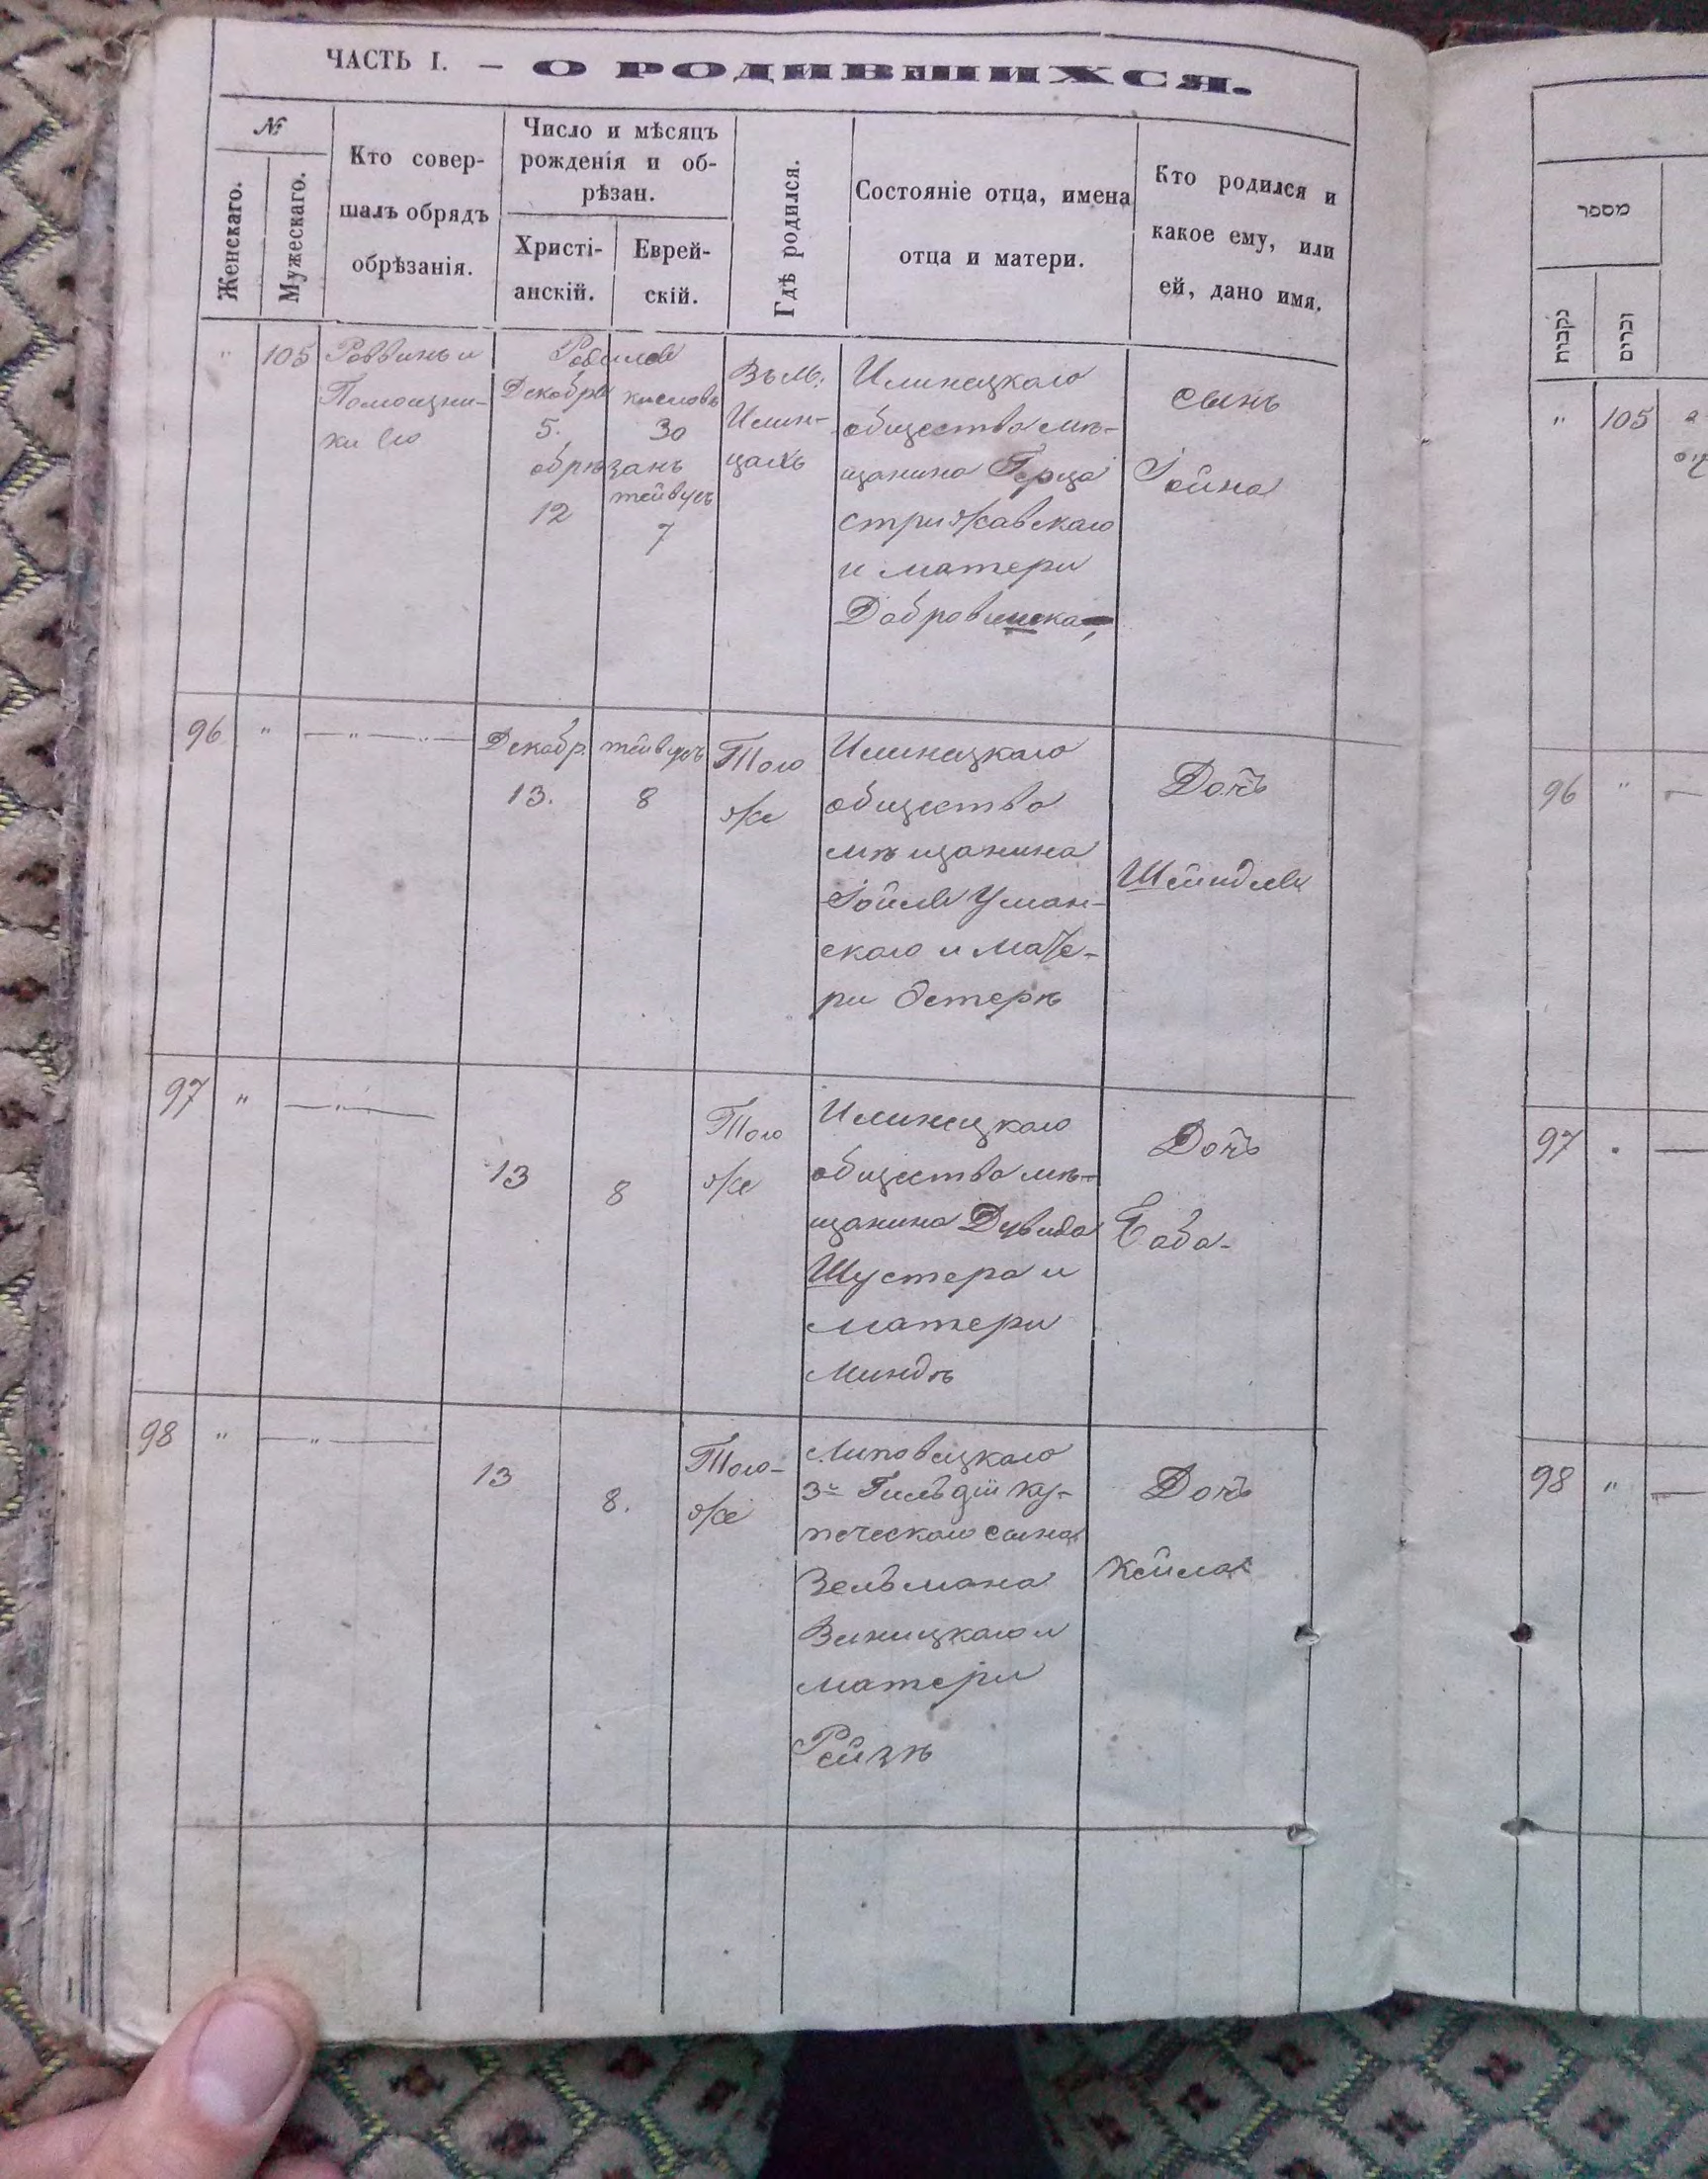 ЧАСТЬ I. — О РОДИВШИХСЯ.
№
Женскаго.
Мужескаго.
Кто совер-
шалъ обрядъ
обрѣзанія.
Число и мѣсяцъ
рожденія и об-
рѣзан.
Христі-
анскій.
Еврей-
скій.
Гдѣ родился.
Состояніе отца, имена
отца и матери.
Кто родился и
какое ему, или
ей, дано имя.
" 105
Раввинъ и
Помощни-
ки его
Родился
Декабря
5.
кисловъ
30
обрѣзанъ
12
тейвусъ
7
Въ м.
Илин-
цахъ
Илинецкаго
общества мѣ-
щанина Герца
Стрижавскаго
и матери
Сынъ
Іойна
96 " — " —
Декабр.
13.
тейвусъ
8
Того
же
Илинецкаго
общества
мѣщанина
Іойля Уман-
скаго и мате-
ри Эстеръ
Дочь
Шейндля
97 " — " —
13
8
Того
же
Илинецкаго
общества мѣ-
щанина Дувида
Шустера и
матери
Миндѣ
Дочь
98 " — " —
13
8.
Того-
же
Липовецкаго
3й Гильдіи ку-
печескаго сына
Зельмана
Виницкаго и
матери
Рейзѣ
Дочь
Кейла
מספר
נקבות
זכרים
" 105
96 "
97
98 "